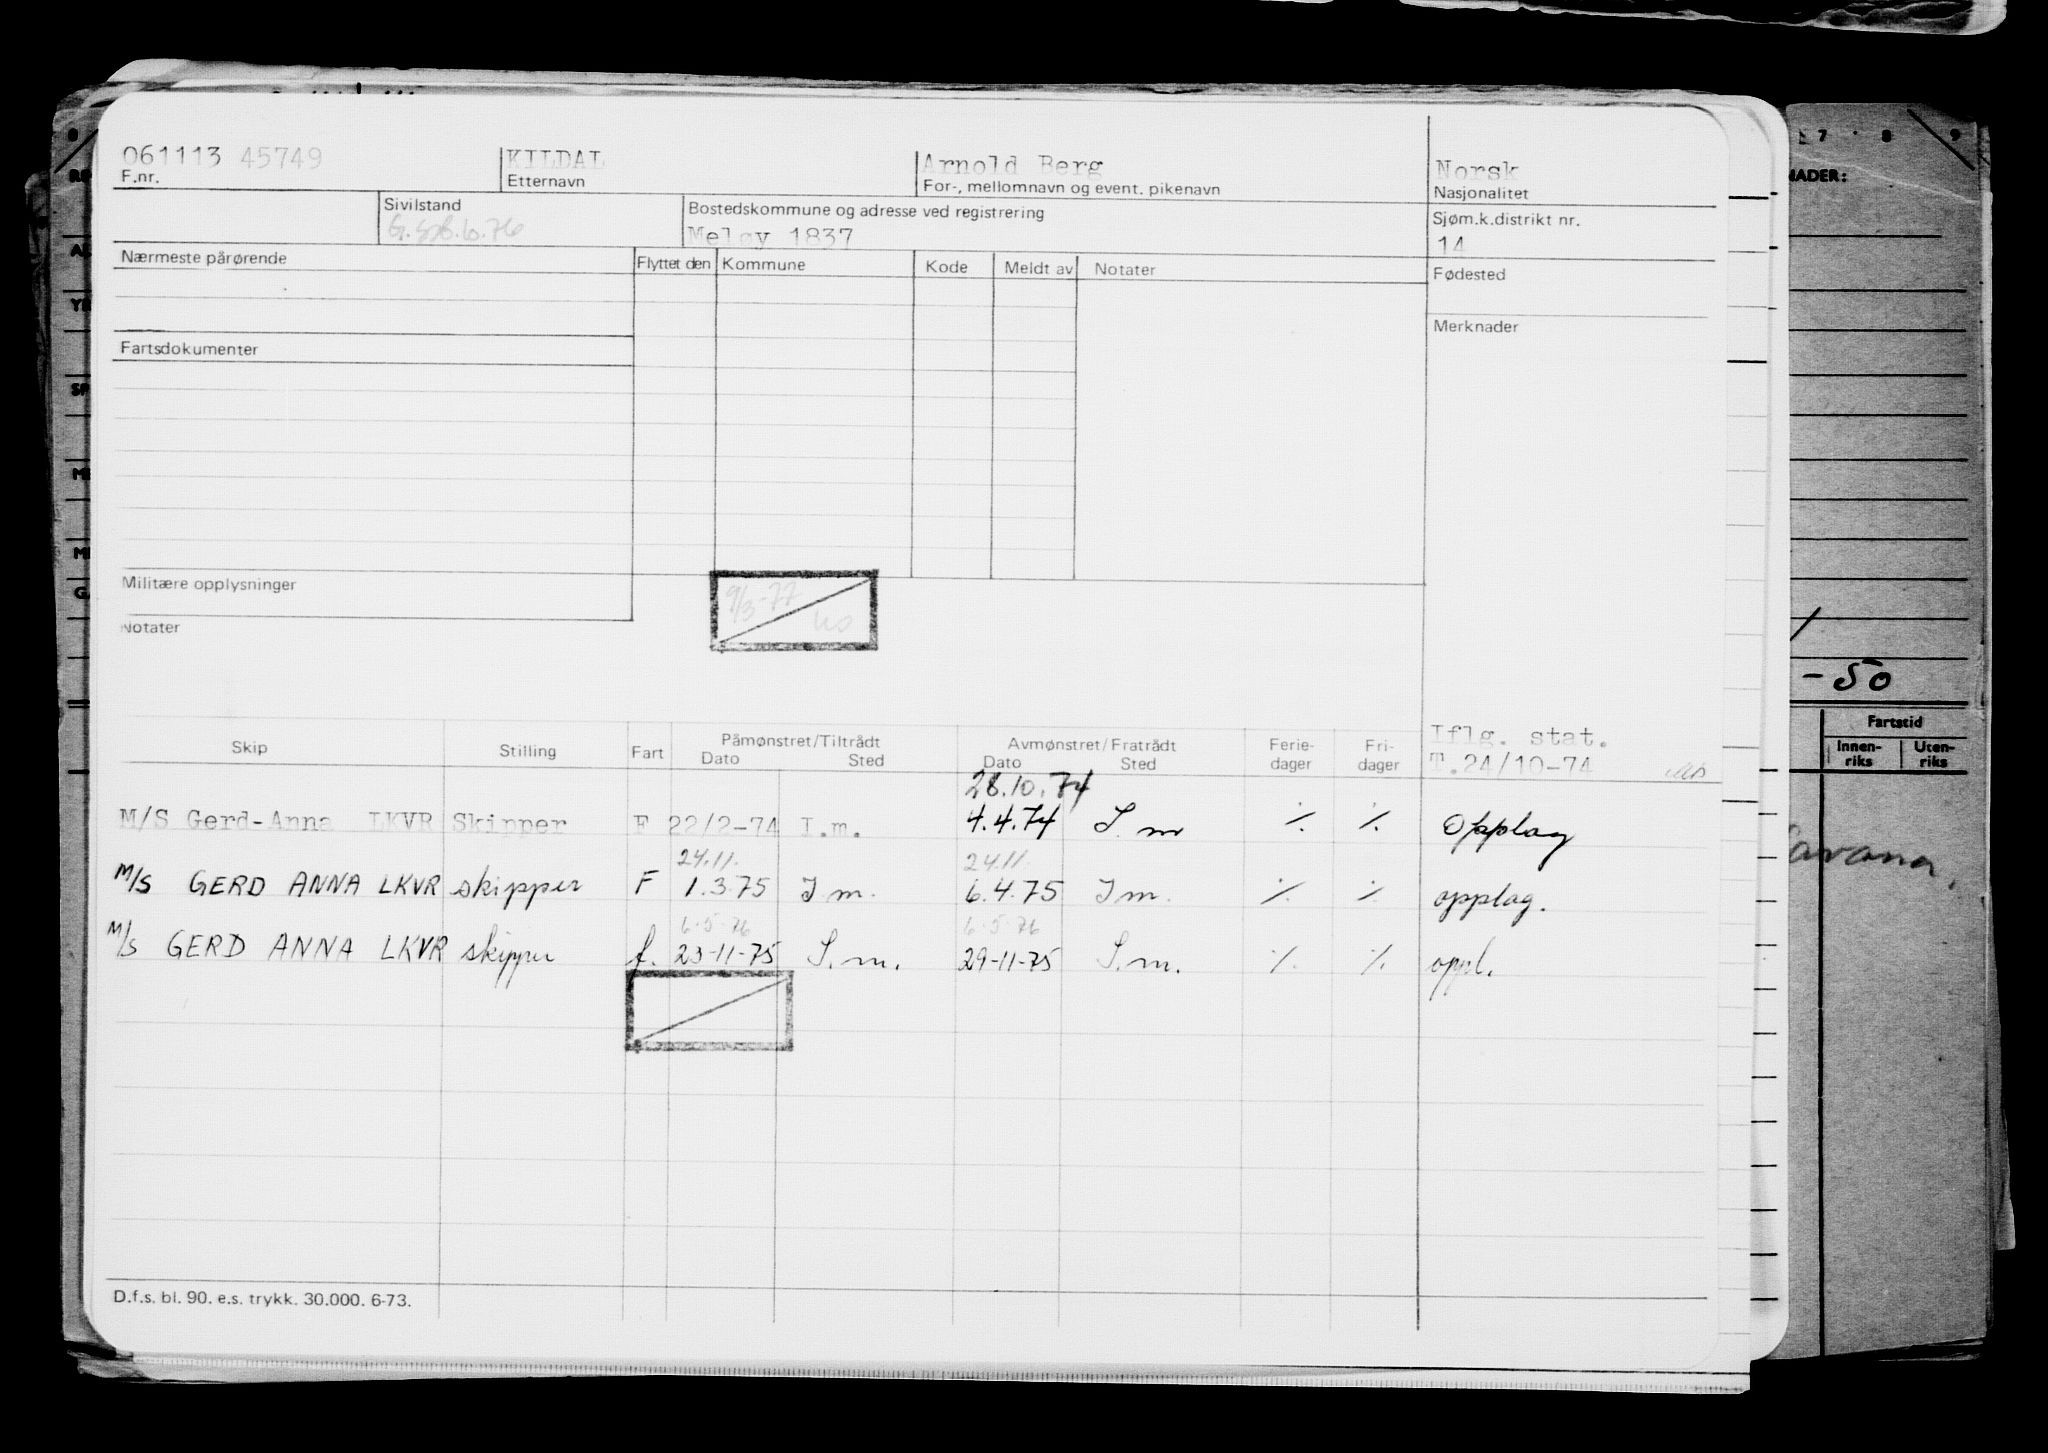 061113 45749 KILDAL Arnold Berg Norsk
F.nr. Etternavn For-, mellomnavn og event. pikenavn Nasjonalitet
Sivilstand Bostedskommune og adresse ved registrering Sjøm.k.distrikt nr.
Meløy 1837 14
Nærmeste pårørende Flyttet den Kommune Kode Meldt av Notater Fødested
Merknader
Fartsdokumenter
Militære opplysninger
9/3-77
Notater
Skip Stilling Fart Påmønstret/Tiltrådt Avmønstret/Fratrådt Ferie- Fri- Iflg. stat.
Dato Sted Dato Sted dager dager T.24/10-74
28.10.74
M/S Gerd-Anna LKVR Skipper F 22/2-74 I.m. 4.4.74 I.m ٪ ٪ Opplag
24.11. 24.11.
M/S GERD ANNA LKVR skipper F 1.3.75 I m. 6.4.75 I m. ٪ ٪ opplag.
6.5.76 6.5.76
M/S GERD ANNA LKVR skipper f. 23-11-75 I.m. 29-11-75 I.m. ٪ ٪ oppl.
D.f.s. bl. 90. e.s. trykk. 30.000. 6-73.
7 8 9
NADER:
-50
Fartstid
Innen- Uten-
riks riks